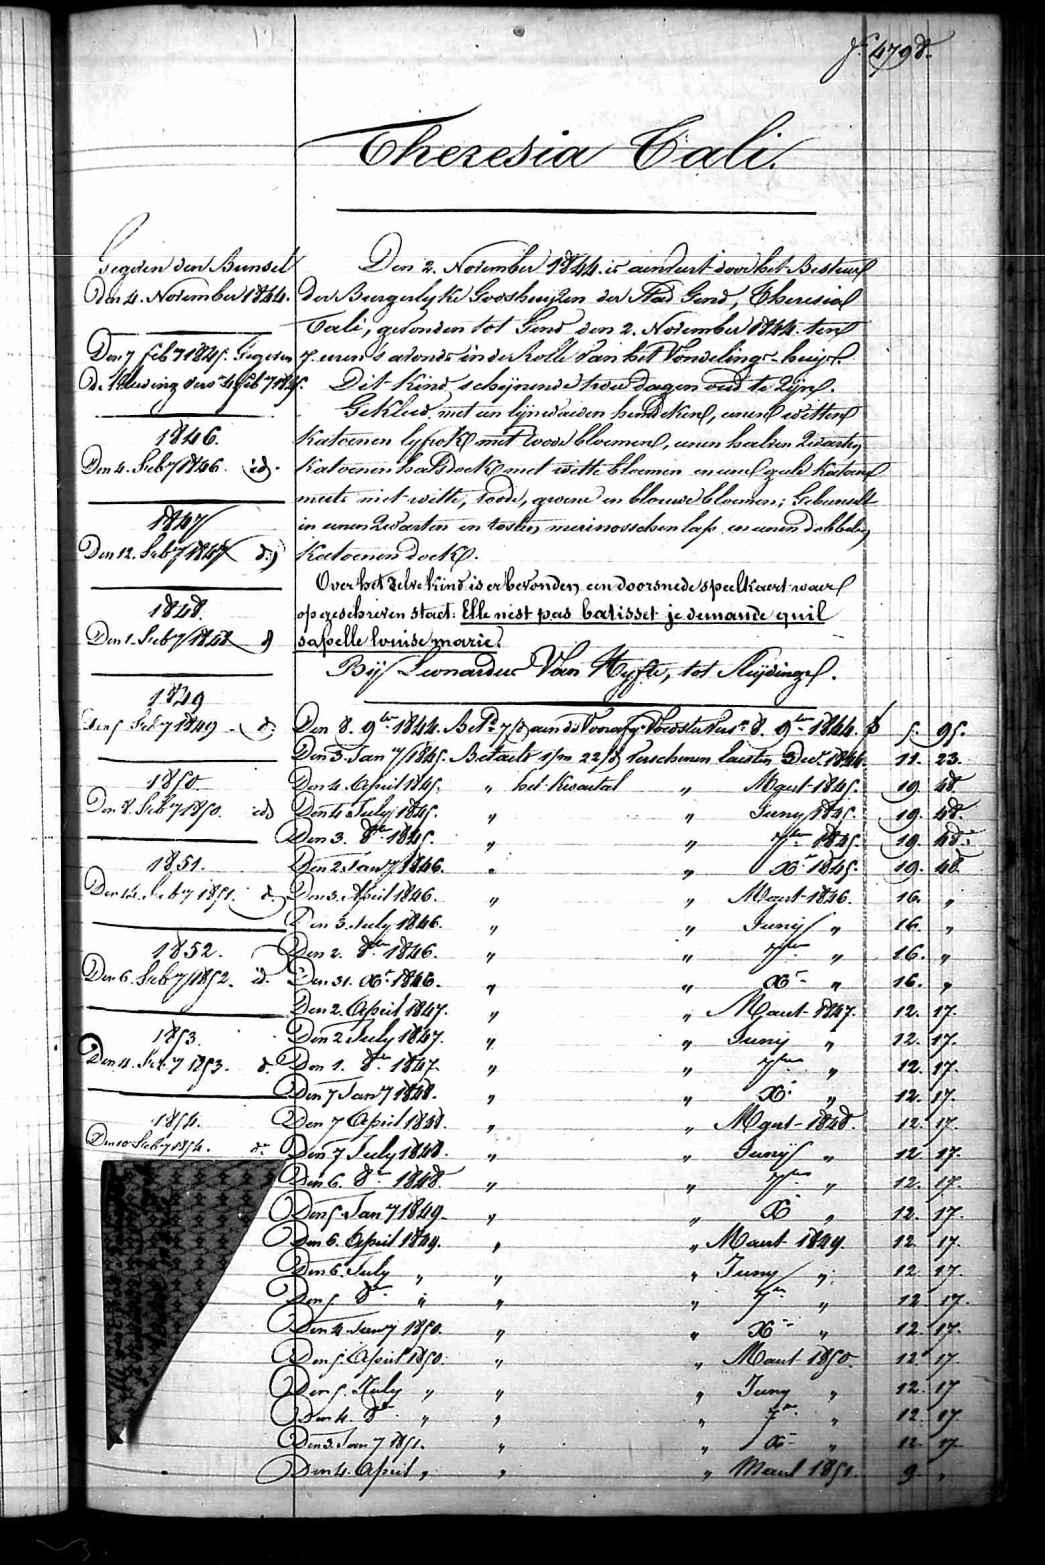 f.º 4798.
Theresia Cali.
Gegeven den Bunsel
Den 4. November 1844.
Den 7 feb 7 1845. Gegeven
de kleeding
1846.
Den 4. Feb 7 1846. id.
1847
Den 12. Feb 7 1847 d.
1848.
Den 1. Feb 7 1848 d
1849
Feb 7 1849 d.
1850.
Den 8. Feb 7 1850. id
1851.
Den 14. Feb 7 1851. d.
1852.
Den 6. Feb 7 1852. id.
1853.
Den 4. Feb 7 1853. d.
1854.
Den 10 Feb 7 1854. d.
Den 2. November 1844. is aenveert door het Bestuur
der Burgerlyke Godshuijzen der Stad Gend, Theresia
Cali, gevonden tot Gend den 2. November 1844. ten
7. uren 's avonds in de Rolle van het Vondelings-huijs.
Dit kind schijnende twee dagen oud te zijn.
Gekleed, met een lijnwaeden hemdeken, eenen witten
katoenen lyfrok met roode bloemen, eenen halven zwarten
katoenen halsdoek met witte bloemen en eene geele katoene
muts met witte, roode, groene en blauwe bloemen; Gebunselt
in eenen zwarten en rosten merinosschen lap en eenen dobbelen
katoenen doek.
Over het zelve kind is er bevonden een doorsnede speelkaert waer
op geschreven staet: Elle nest pas batisset je demande quil
sapelle louise marie.
Bij Leonardus Van Hyfte, tot Sleijdinge.
Den 8. 9ber 1844. Bet. 7 aen de Voorafg. Voedster 8. 9ber 1844. 5. 95.
Den 3. Jan 7 1845. Betaelt 1/m 22/d verschenen laesten Decr. 1844. 11. 23.
Den 4. April 1845. " het kwartael " Maert 1845. 19. 48.
Den 4 July 1845. " " Juny 1845. 19. 48.
Den 3. 8ber 1845. " " 7ber 1845. 19. 48.
Den 2 Jan 7 1846. " " Xr 1845. 19. 48
Den 3. April 1846. " " Maert 1846. 16. "
Den 3. July 1846. " " Junij " 16. "
Den 2. 8ber 1846. " " 7ber " 16. "
Den 31. Xr 1846. " " Xr " 16. "
Den 2. April 1847. " " Maert 1847. 12. 17.
Den 2 July 1847. " " Juny " 12. 17.
Den 1. 8ber 1847. " " 7ber " 12. 17.
Den 7 Jan 7 1848. " " Xr " 12. 17.
Den 7 April 1848. " " Maert 1848. 12. 17.
Den 7 July 1848. " " Junij " 12 17.
Den 6. 8ber 1848. " " 7ber " 12. 17.
Den 5. Jan 7 1849. " " X " 12. 17.
Den 6. April 1849. " " Maert 1849. 12 17.
Den 6. July " " " Juny " 12 17.
Den 5 8ber " " " 7ber " 12 17.
Den 4. Jan 7 1850. " " Xr " 12. 17.
Den 5. April 1850. " " Maert 1850. 12 17.
Den 5. July " " " Juny " 12. 17
Den 4. 8ber " " " 7ber " 12. 17
Den 3. Jan 7 1851. " " Xr " 12. 17
Den 4. April " " " Maert 1851. 9. "